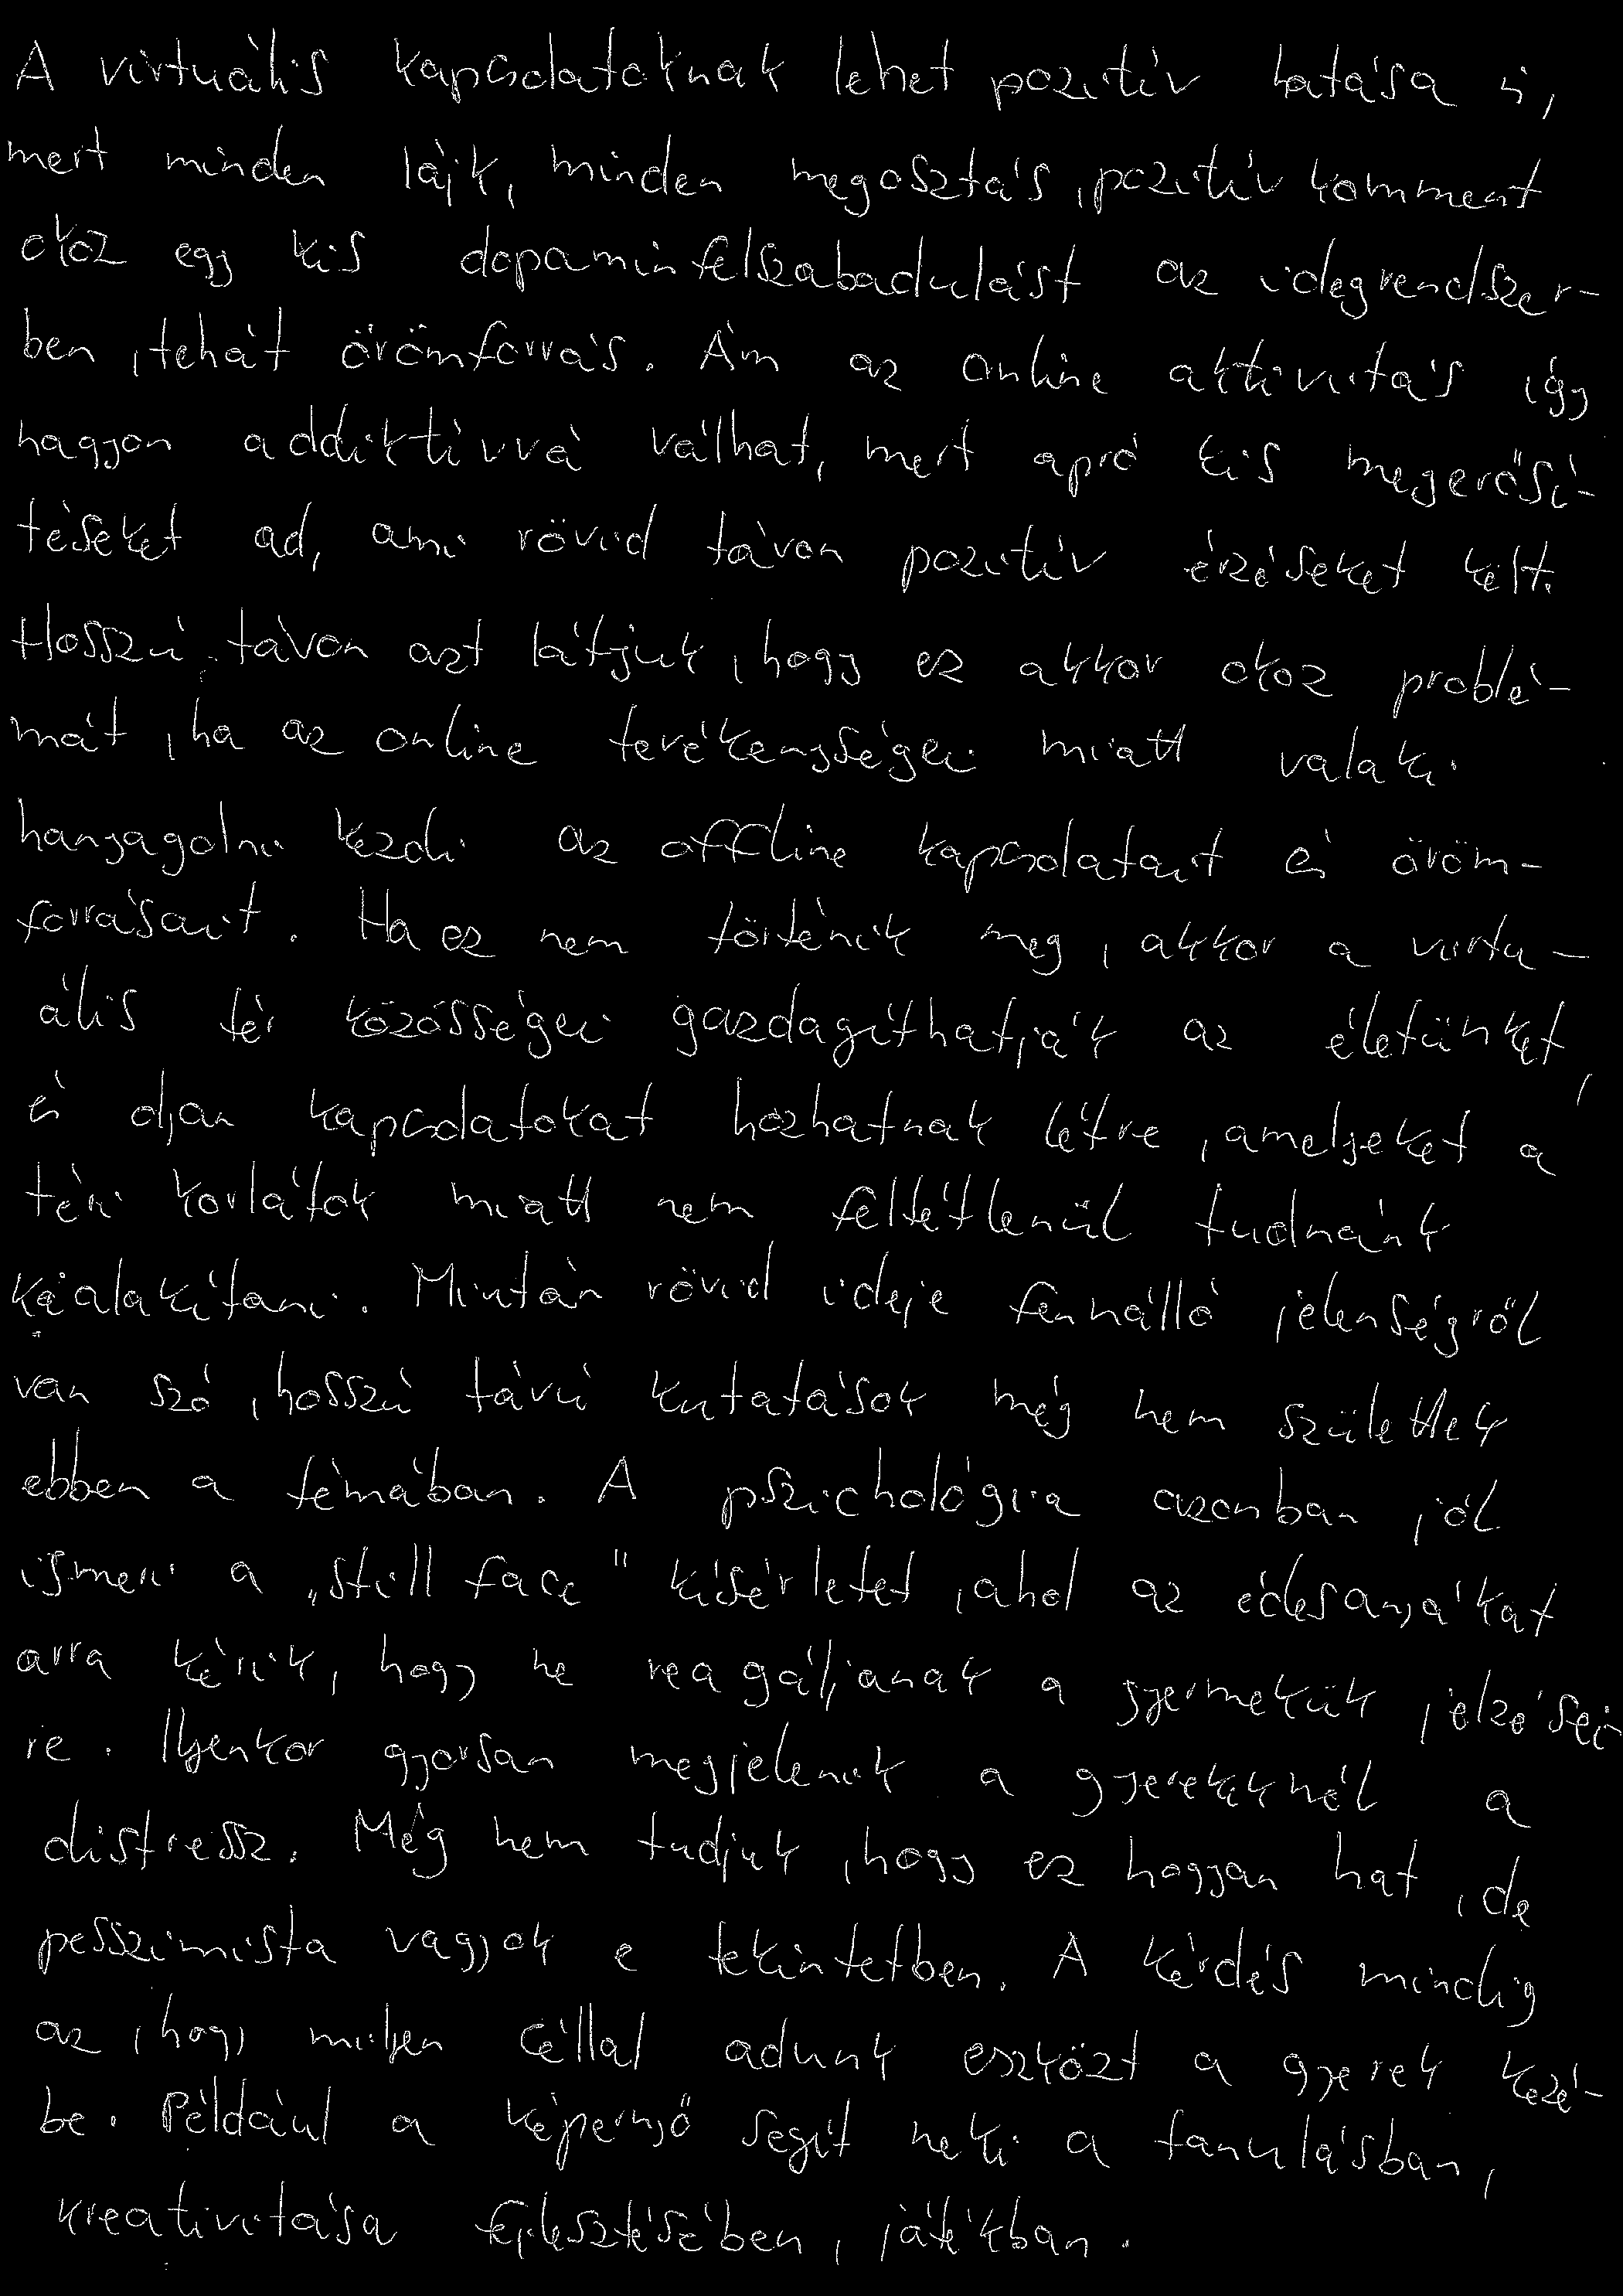 A virtuális kapcsolatoknak lehet pozitív hatása is,
mert minden lájk, minden megosztás, pozitív komment
okoz egy kis dopaminfelszabadulást az idegrendszer-
ben, tehát örömforrás. Ám az online aktivitás így
hagyon addiktívvá válhat, mert apró kis megerősí-
téseket ad, ami rövid távon pozitív érzéseket kelt.
Hosszú távon azt látjuk, hogy ez akkor okoz problé-
mát, ha az online tevékenységei miatt valaki
hanyagolni kezdi az offline kapcsolatait és öröm-
forrásait. Ha ez nem történik meg, akkor a virtu-
ális tér közösségei gazdagíthatják az életünket,
és olyan kapcsolatokat hozhatnak létre, amelyeket a
téri korlátok miatt nem feltétlenül tudnánk
kialakítani. Miután rövid ideje fennálló jelenségről
van szó, hosszú távú kutatások még nem születtek
ebben a témában. A pszichológia azonban jól
ismeri a „still face" kísérletet, ahol az édesanyákat
arra kérik, hogy ne reagáljanak a gyermekük jelzései-
re. Ilyenkor gyorsan megjelenik a gyerekeknél a
distressz. Még nem tudjuk, hogy ez hogyan hat, de
pesszimista vagyok e tekintetben. A kérdés mindig
az, hogy milyen céllal adunk eszközt a gyerek kezé-
be. Például a képernyő segít neki a tanulásban,
kreativitása fejlesztésében, játékban.